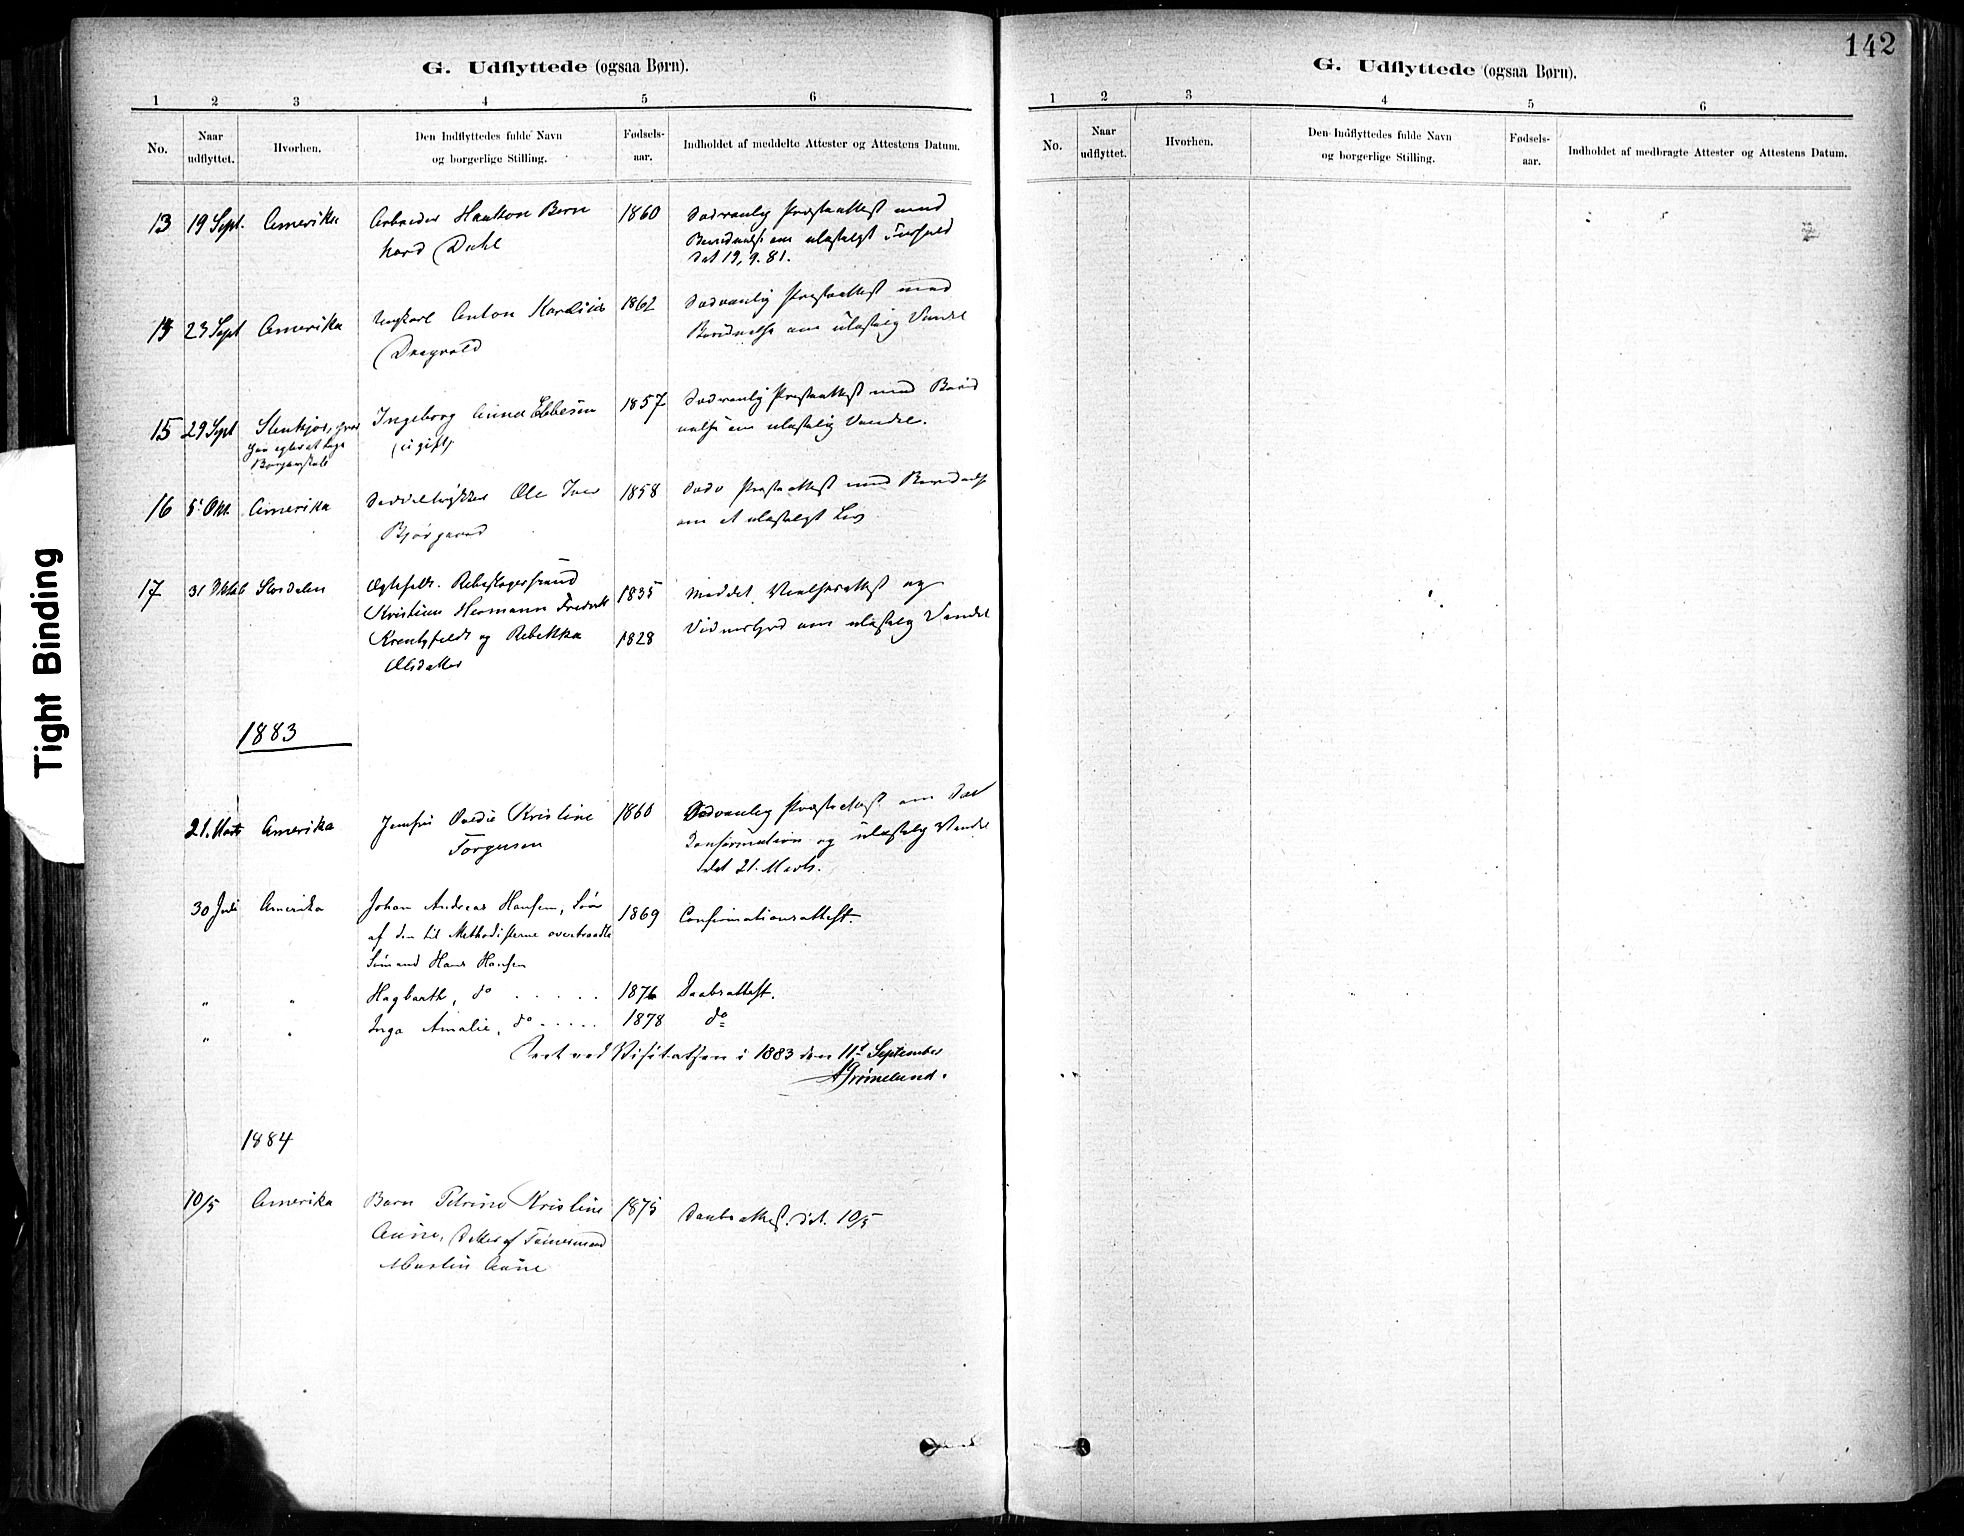 142
G. Udflyttede (ogsaa Børn).
1 2 3 4 5 6
No. Naar udflyttet. Hvorhen. Den Indflyttedes fulde Navn og borgerlige Stilling. Fødsels-aar. Indholdet af meddelte Attester og Attestens Datum.
13 19 Sept. Amerika Arbeider Haakon Bern 1860 Sædvanlig Præsteattest med
hard Dahl om ulasteligt Forhold
dat 19, 9. 81.
23 Sept Amerika Ungkarl Anton 1862 Sædvanlig Præsteattest med
Dragvold om ulastelig Vandel
15 29 Sept Stenkjær, Ingeborg Anna Ebbesen 1857 Sædvanlig Præsteattest med
(ugift) om ulastelig Vandel.
16 5 Okt. Amerika Ole Iver 1858 Sædv Præsteattest med
Bjørgaard om et ulasteligt Lev
17 31 Oktob Stordalen Ægtefolk. 1835 Meddelt Vielsesattest og
Kristian Hermann Fredrik
og Rebekka 1828 Vidnesbyrd om ulastelig Vandel
Olsdatter
1883
21. Marts Amerika Jomfru Kristine 1860 Sædvanlig Præsteattest om Daab
Jørgensen Konfirmation og ulastelig Vandel
dat 21. Marts.
30 Juli Amerika Johan Andreas Hansen, Søn 1869 Confirmationsattest.
af den til Methodisterne overtraadte
Sømand Hans Hansen
" " Hagbarth, do . . . . . 1876 Daabsattest.
" " Inga Amalie, do . . . . . 1878 do
Seet ved Visitatsen i 1883 den 11te September
AGrønelund.
1884
10/5 Amerika Barn Petrine Kristine 1875 Daabsattest. dat. 10/5
Aune, Datter af
Martin Aune
G. Udflyttede (ogsaa Børn).
1 2 3 4 5 6
No. Naar udflyttet. Hvorhen. Den Indflyttedes fulde Navn og borgerlige Stilling. Fødsels-aar. Indholdet af medbragte Attester og Attestens Datum.
Tight Binding